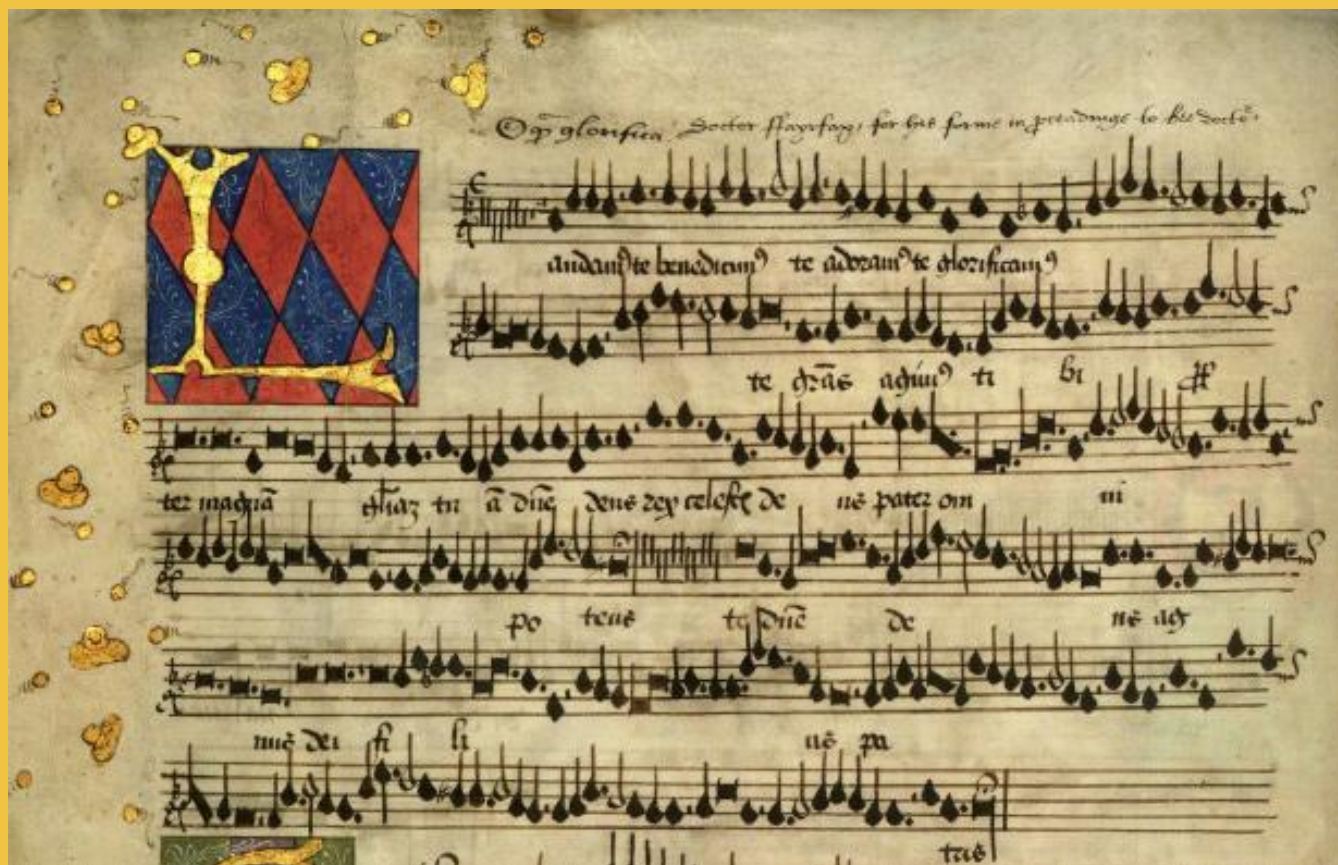 O qͣ glorifica. Doctor ffayrfax, for his forme in proadinge to bee doctoʳ.
L audamꝰ te benedicimꝰ te adoramꝰ te glorificamꝰ
te grãs agimꝰ ti bi
ter magnã gliaʒ tu ã dñe deus rex celest de us pater om ni
po teus te dñe de us ag
nus dei fi li us pa
tus